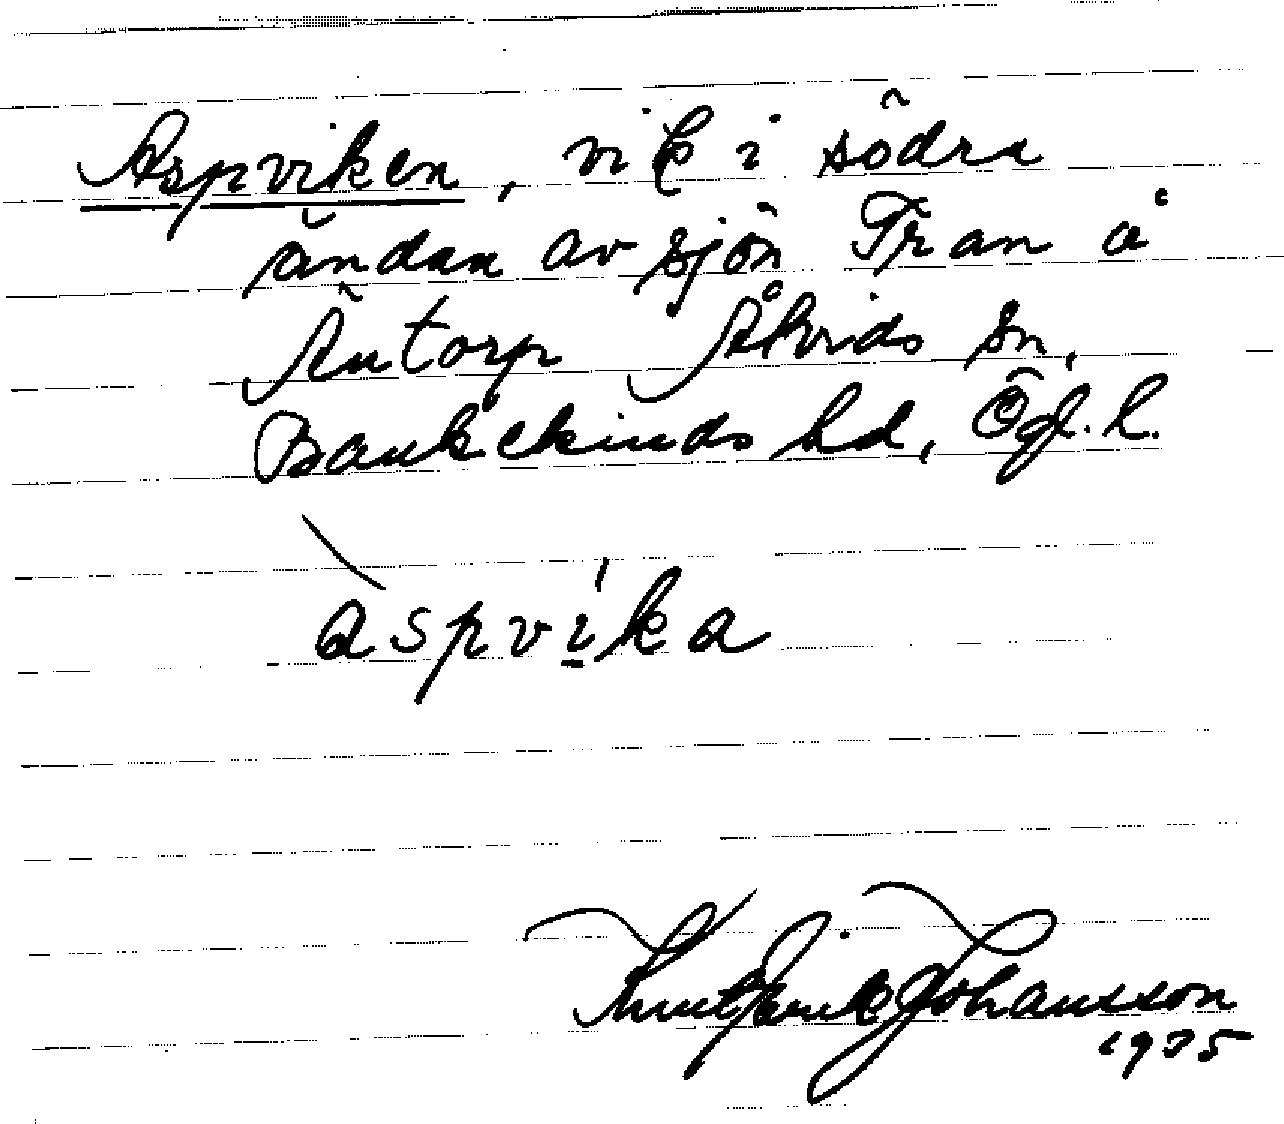 Aspviken, vik i södra
ändan av sjön Fran å
Äntorp Åtvids sn,
Bankekinds hd, Ögl. l.
àspvi̱ka
Knut Erik Johansson
1935